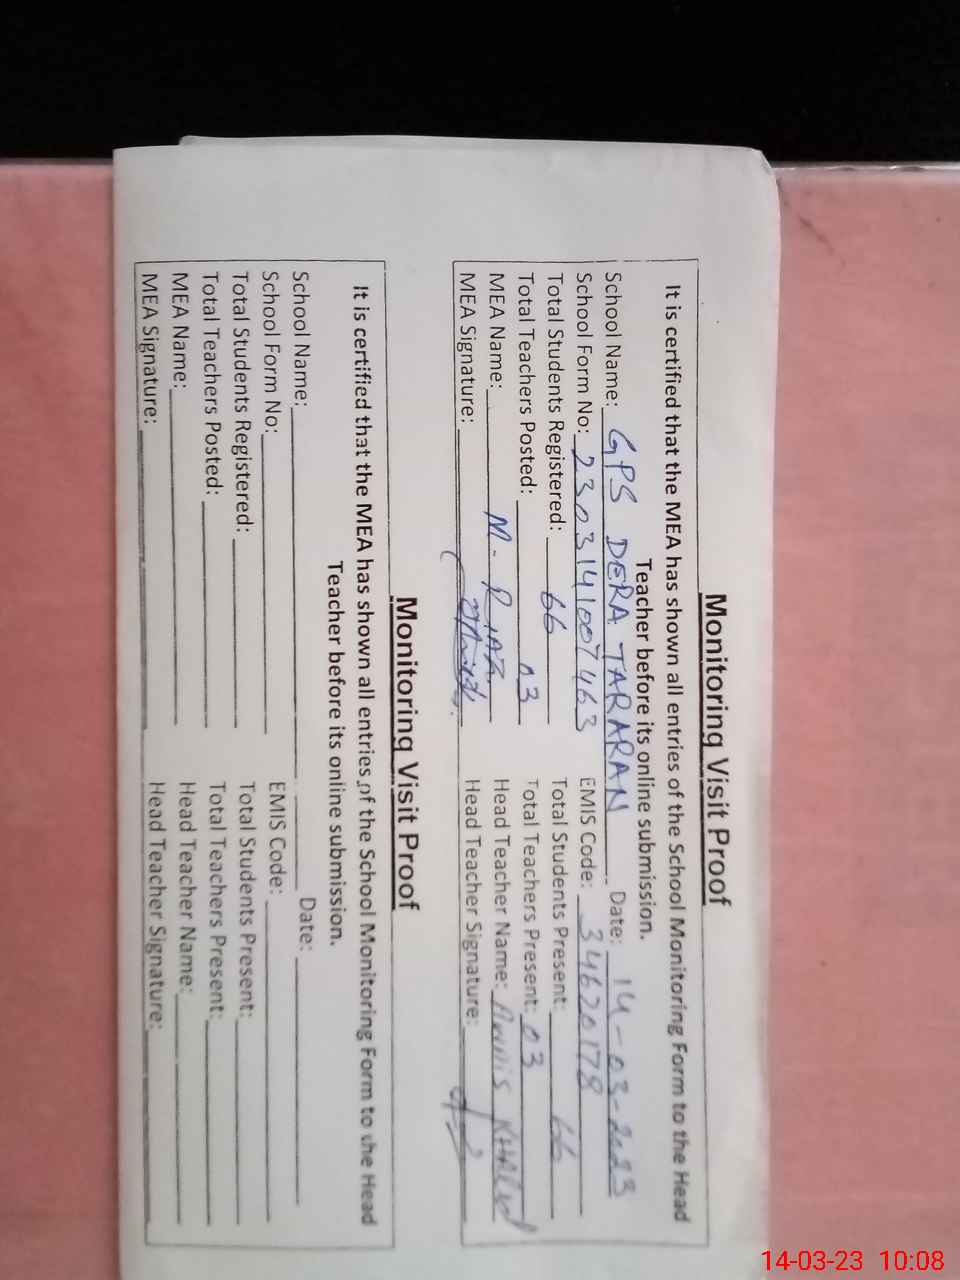 Monitoring Visit Proof
It is certified that the MEA has shown all entries of the School Monitoring Form to the Head
Teacher before its online submission.
School Name: GPS DERA TARARAN Date: 14-03-2023
School Form No: 2303141007463 EMIS Code: 34620178
Total Students Registered: 66 Total Students Present: 66
Total Teachers Posted: 03 Total Teachers Present: 03
MEA Name: M. RIAZ Head Teacher Name:
MEA Signature: Head Teacher Signature:
Monitoring Visit Proof
It is certified that the MEA has shown all entries of the School Monitoring Form to the Head
Teacher before its online submission.
School Name: Date:
School Form No: EMIS Code:
Total Students Registered: Total Students Present:
Total Teachers Posted: Total Teachers Present:
MEA Name: Head Teacher Name:
MEA Signature: Head Teacher Signature:
14-03-23 10:08